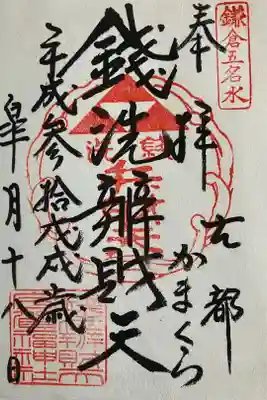 鎌倉五名水
古都
かまくら
奉拝
銭洗辨財天
平成参拾戊戌歳
皐月十八日